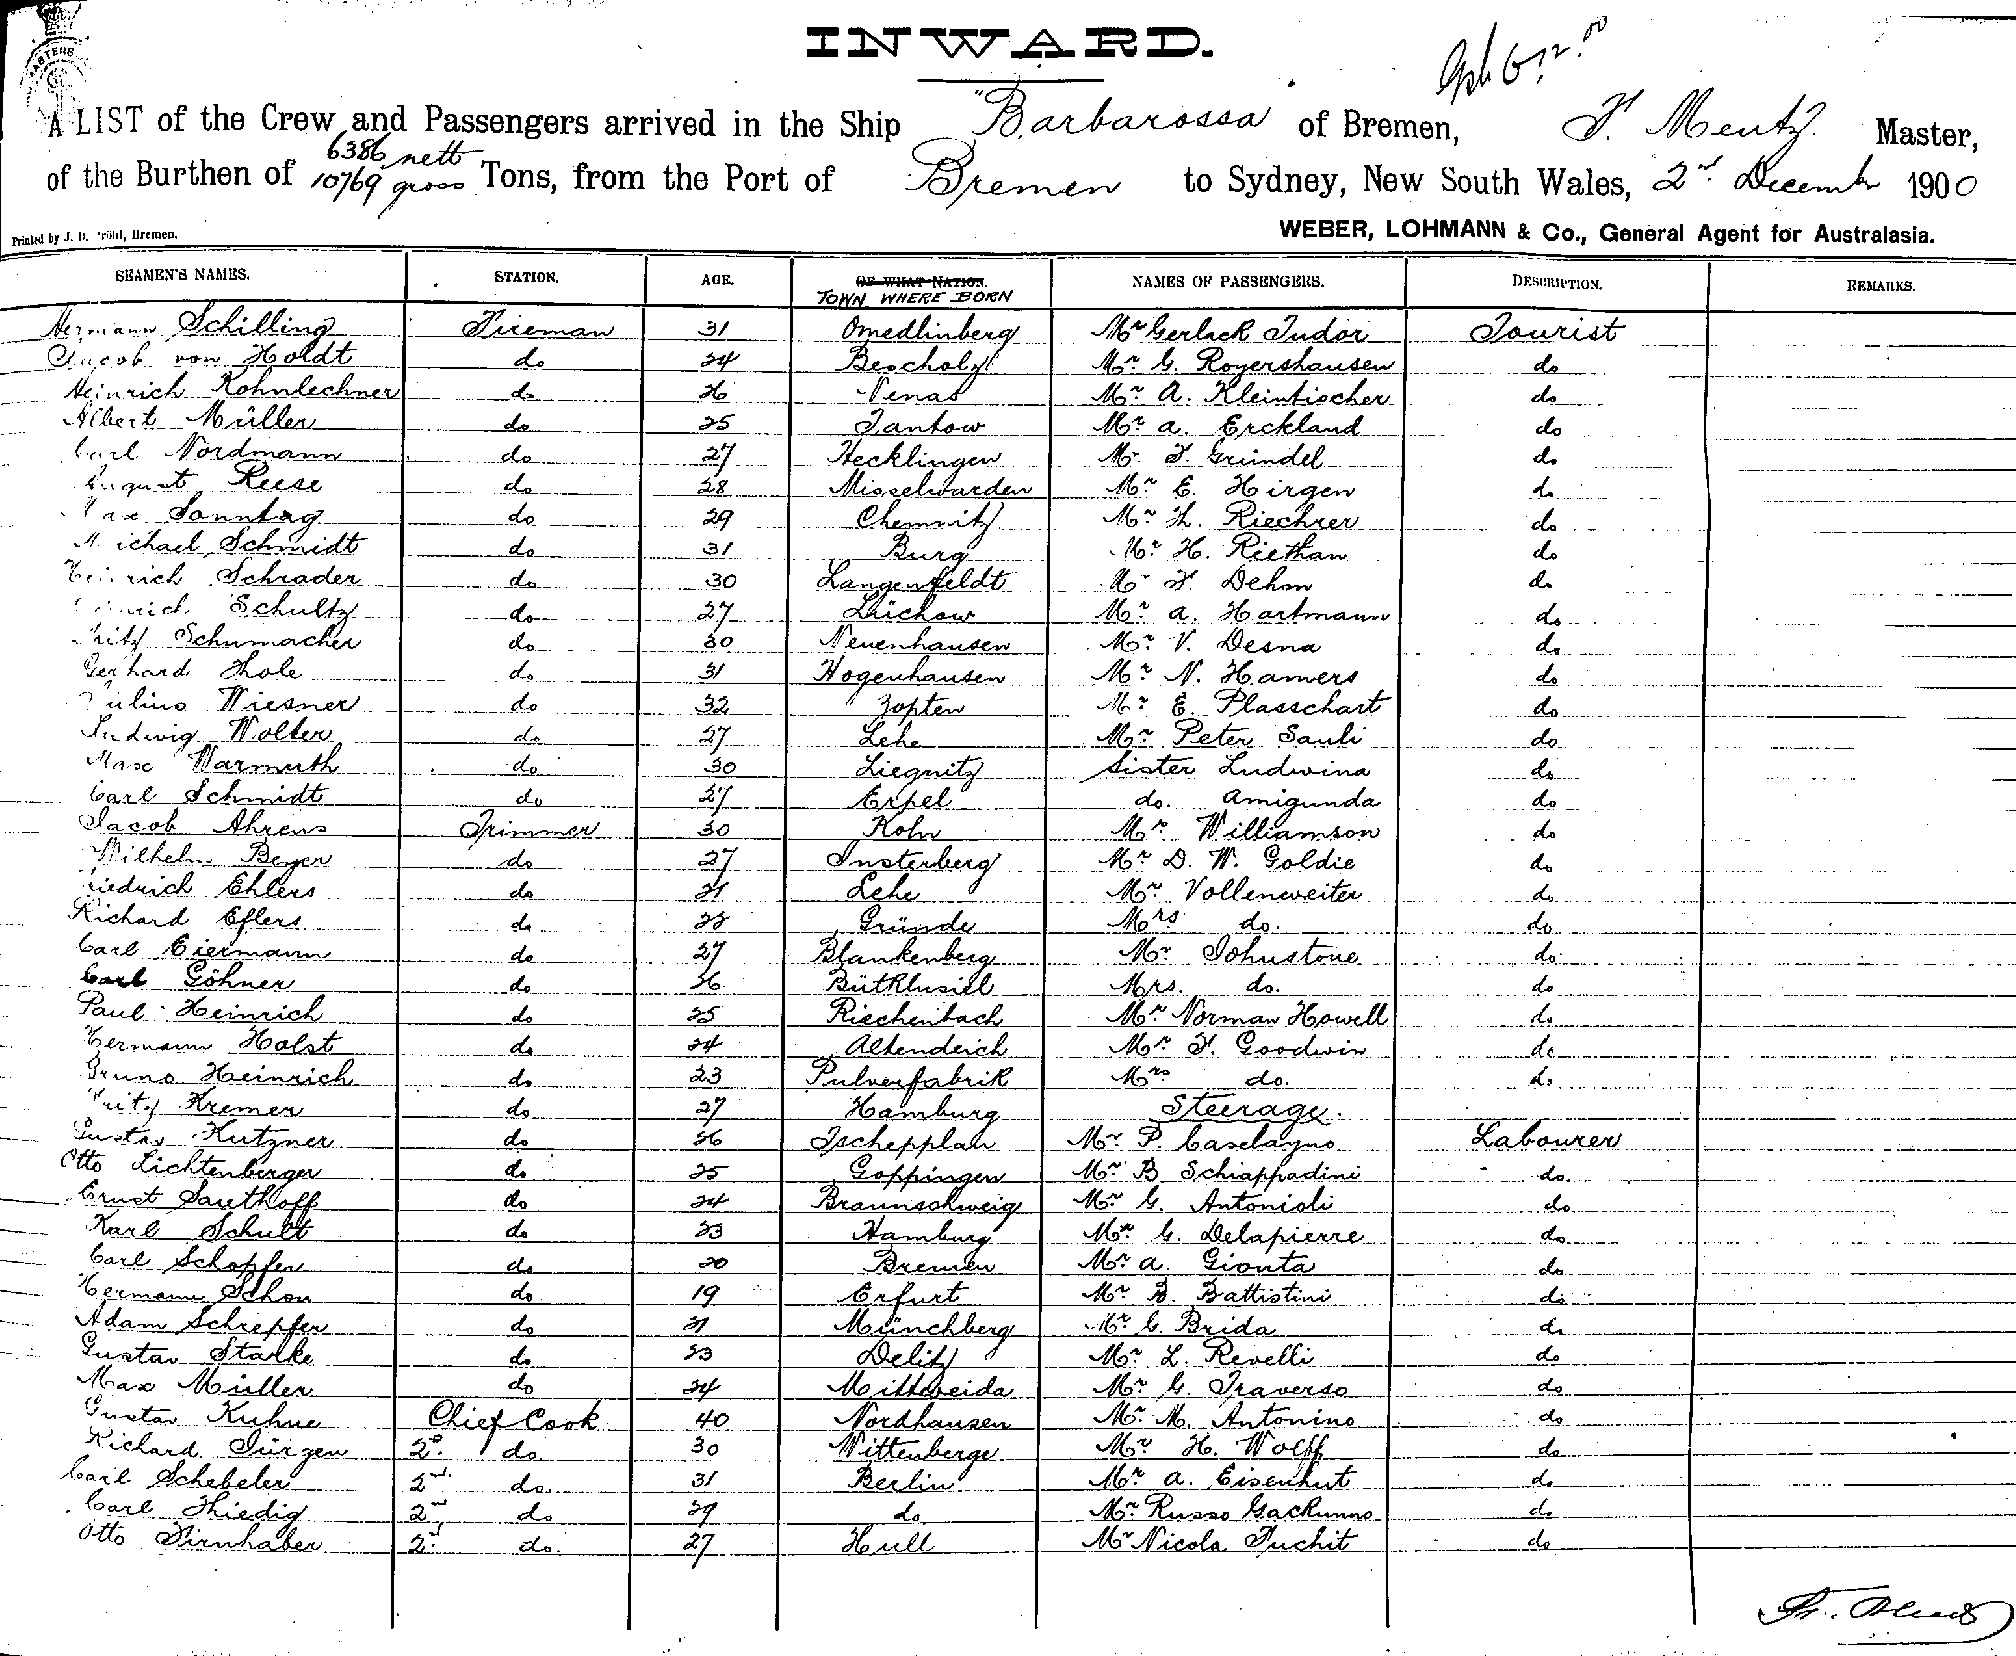 INWARD.
A LIST of the Crew and Passengers arrived in the Ship "Barbarossa of Bremen, F. Mentz. Master,
6386 nett
of the Burthen of 10769 gross Tons, from the Port of Bremen to Sydney, New South Wales, 2nd December 1900
Printed by J. H. Bremen.
WEBER, LOHMANN & Co., General Agent for Australasia.
SEAMEN'S NAMES. STATION. AGE. OF WHAT NATION. NAMES OF PASSENGERS. DESCRIPTION. REMARKS.
TOWN WHERE BORN
Hermann Schilling Fireman 31 Omedlinberg Mr Gerlach Tudor Tourist
Jacob von Holdt do 24 Bescholz Mr G. Rogershausen do
Heinrich Kohnlechner do 26 Nenas Mr A. Kleintischer do
Albert Müller do 25 Tantow Mr A. Erckland do
Carl Nordmann do 27 Hecklingen Mr F. Gründel do
August Reese do 28 Misselwarden Mr E. Hirgen do
Max Sonntag do 29 Chemnitz Mr Th. Riechrer do
Michael Schmidt do 31 Burg Mr H. Riethan do
Heinrich Schrader do 30 Langenfeldt Mr F. Dehm do
Heinrich Schultz do 27 Lüchow Mr A. Hartmann do
Fritz Schumacher do 30 Neuenhausen Mr V. Desna do
Gerhard Thole do 31 Hogenhausen Mr N. Hamers do
Julius Wiesner do 32 Zopten Mr E. Plasschart do
Ludwig Wolter do 27 Lehe Mr Peter Sauli do
Max Warmuth do 30 Liegnitz Sister Ludwina do
Carl Schmidt do 27 Erpel do. Amigunda do
Jacob Ahrens Trimmer 30 Koln Mr Williamson do
Wilhelm Beyer do 27 Insterberg Mr D. W. Goldie do
Friedrich Ehlers do 21 Lehe Mr Volleneweiter do
Richard Eflers do 22 Gründe Mrs do. do
Carl Eiermann do 27 Blankenberg Mr Johnstone do
Carl Göhner do 26 Bütklusiel Mrs. do. do
Paul Heinrich do 25 Riechenbach Mr Norman Howell do
Hermann Holst do 24 Altendeich Mr F. Goodwin do
Bruno Heinrich do 23 Pulverfabrik Mrs do. do
Fritz Kremer do 27 Hamburg Steerage.
Gustav Kutzner do 26 Tschepplau Mr P. Caselagno Labourer
Otto Lichtenberger do 25 Goppingen Mr B Schiappadini do.
Ernst Sauthoff do 24 Braunschweig Mr G. Antonioli do
Karl Schult do 23 Hamburg Mr G. Delapierre do.
Carl Schopfer do 20 Bremen Mr A. Gionta do
Hermann Schon do 19 Erfurt Mr B. Battistini do
Adam Schrepfer do 21 Münchberg Mr C. Brida do
Gustav Starke do 23 Delitz Mr L. Revelli do
Max Müller do 24 Mittweida Mr G. Traverso do
Gustav Kuhne Chief Cook 40 Nordhausen Mr M. Antonino do
Richard Jürgen 2nd do 30 Wittenberge Mr H. Wolff do
Carl Schebeler 2nd do. 31 Berlin Mr A. Eisenhut do
Carl Thiedig 2nd do 29 do. Mr Russo Gackunno do
Otto Firnhaber 2nd do. 27 Hull Mr Nicola Puchit do